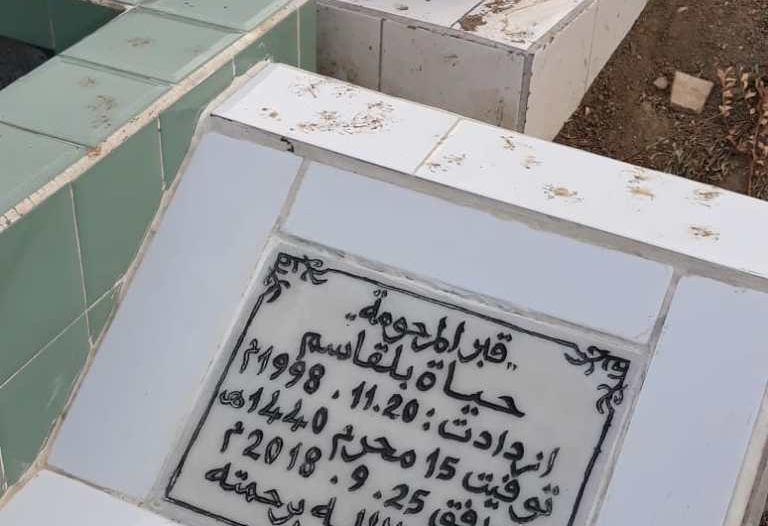 "قبر المرحومة"
حياة بلقاسم
ازدادت : 20 . 11 . 1998 م
توفيت 15 محرم 1440 هـ
25 . 9 . 2018 م
الله برحمته